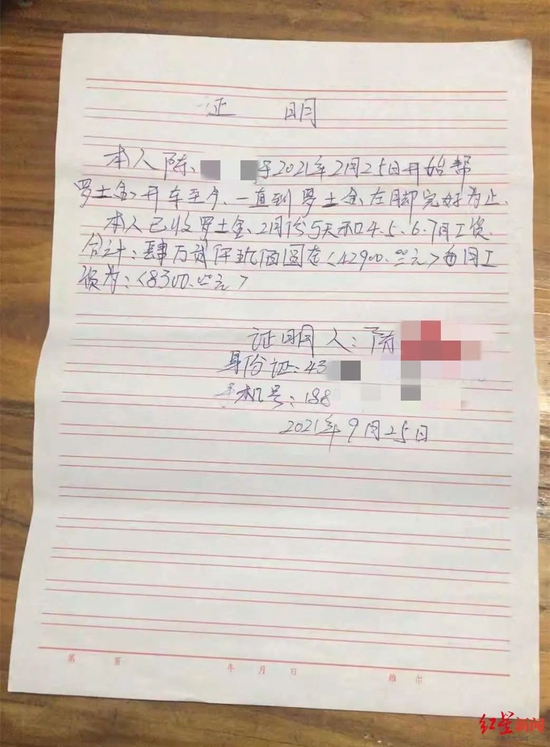 证 明
本人陈 于2021年2月25日开始帮
罗土金开车至今,一直到罗土金左脚完好为止.
本人已收罗土金2月份5天和4.5.6.7月工资.
合计:肆万贰仟玖佰圆在<42900.00元>每月工
资为:<8300.00元>
证明人:陈
身份证:43
手机号:188
2021年9月25日
第 页 年 月 日 维尔
红星新闻